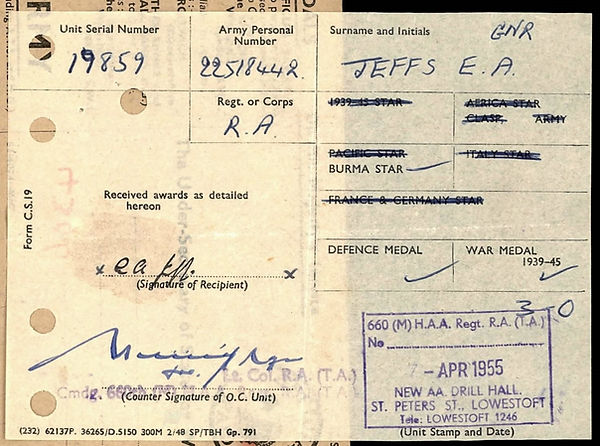 Unit Serial Number
Army Personal Number
Surname and Initials
GNR
19859
22518442
JEFFS E.A.
Regt. or Corps
R.A.
1939-45 STAR
AFRICA STAR
CLASP, ARMY
PACIFIC STAR
BURMA STAR
ITALY STAR
FRANCE & GERMANY STAR
Form C.S.19
Received awards as detailed
hereon
DEFENCE MEDAL
WAR MEDAL
1939-45
x x
(Signature of Recipient)
3-0
660 (M) H.A.A. Regt. R.A. (T.A.)
No
7 - APR 1955
NEW AA. DRILL HALL.
ST. PETERS ST., LOWESTOFT
Tele: LOWESTOFT 1246
Lt. Col. R.A. (T.A.)
Cmdg.
(Counter Signature of O.C. Unit)
(Unit Stamp and Date)
(232) 62137P. 36265/D.5150 300M 2/48 SP/TBH Gp. 791